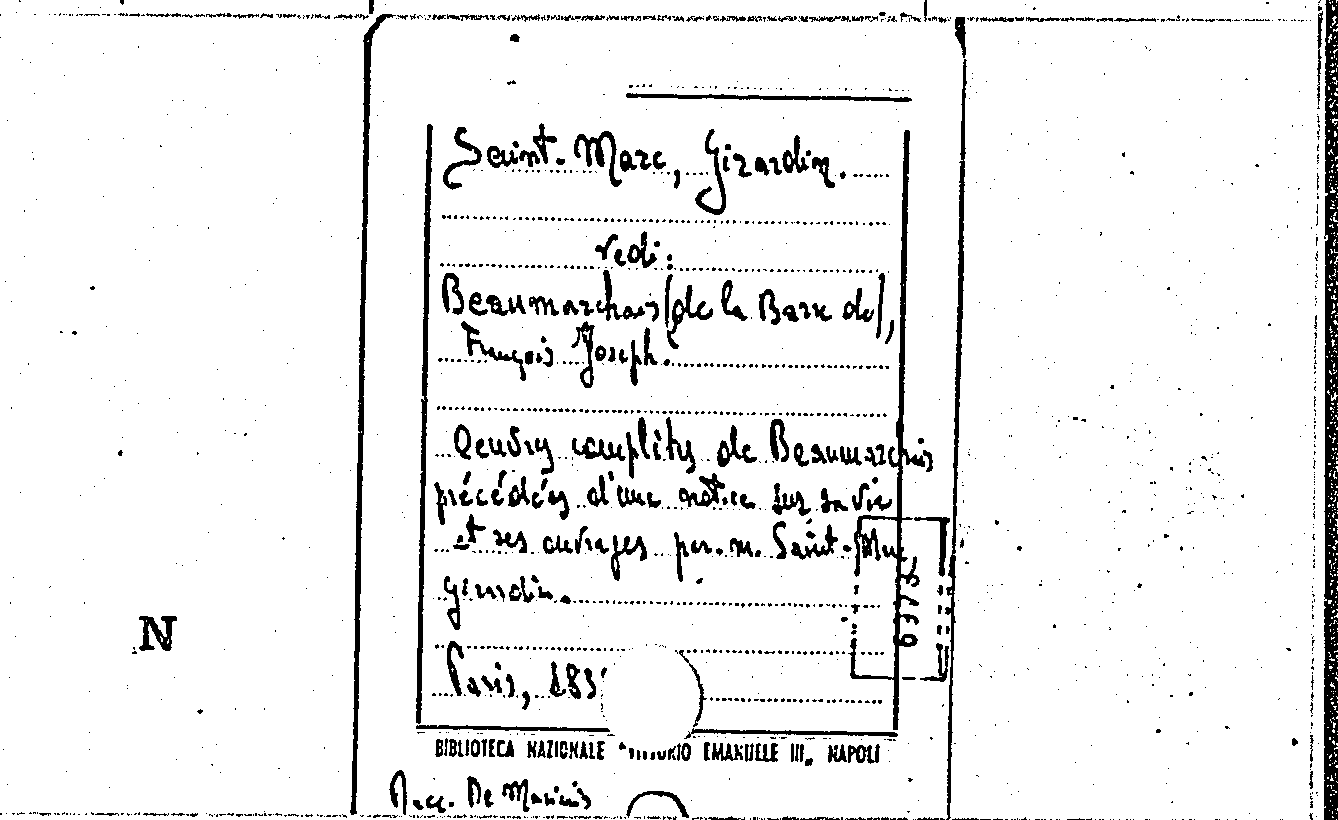 Saint-Marc, Girardin.
vedi:
Beaumarchais (de la Barre de),
François Joseph.
Oeuvres complètes de Beaumarchais
précédées d'une notice sur sa vie
et ses ouvrages par m. Saint-Marc
Girardin.
Paris, 183
BIBLIOTECA NAZIONALE "VITTORIO EMANUELE III„ NAPOLI
Racc. De Marinis
N